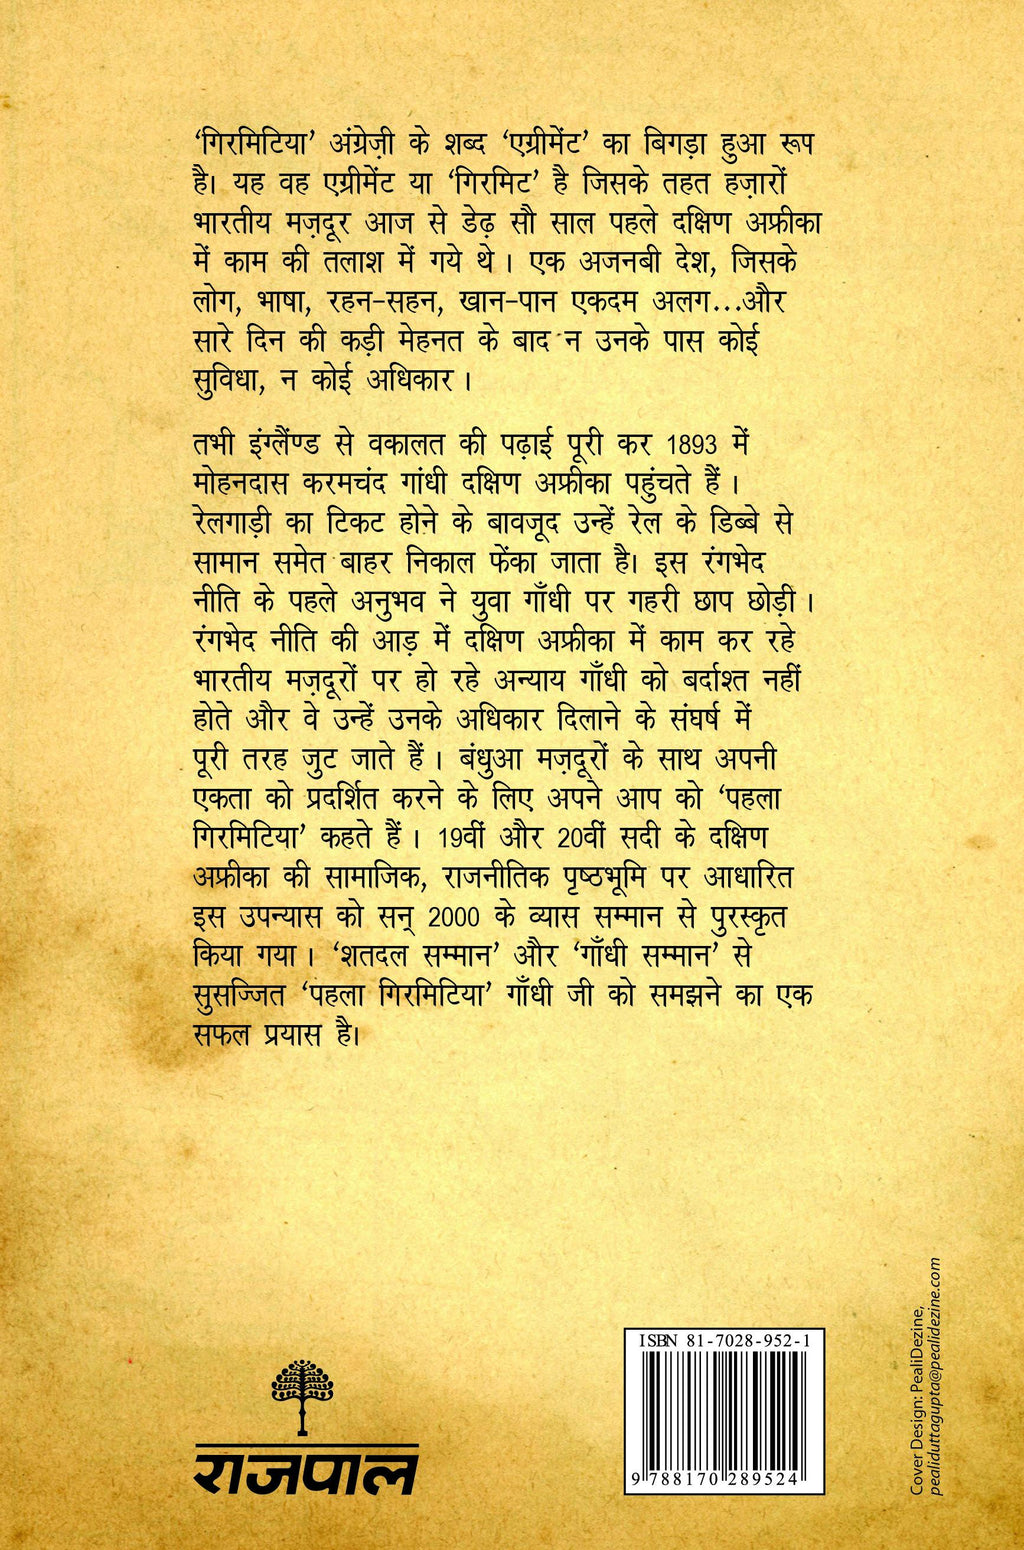 ‘गिरमिटिया’ अंग्रेज़ी के शब्द ‘एग्रीमेंट’ का बिगड़ा हुआ रूप
है। यह वह एग्रीमेंट या ‘गिरमिट’ है जिसके तहत हज़ारों
भारतीय मज़दूर आज से डेढ़ सौ साल पहले दक्षिण अफ्रीका
में काम की तलाश में गये थे। एक अजनबी देश, जिसके
लोग, भाषा, रहन-सहन, खान-पान एकदम अलग...और
सारे दिन की कड़ी मेहनत के बाद न उनके पास कोई
सुविधा, न कोई अधिकार।
तभी इंग्लैंण्ड से वकालत की पढ़ाई पूरी कर 1893 में
मोहनदास करमचंद गांधी दक्षिण अफ्रीका पहुंचते हैं।
रेलगाड़ी का टिकट होने के बावजूद उन्हें रेल के डिब्बे से
सामान समेत बाहर निकाल फेंका जाता है। इस रंगभेद
नीति के पहले अनुभव ने युवा गाँधी पर गहरी छाप छोड़ी।
रंगभेद नीति की आड़ में दक्षिण अफ्रीका में काम कर रहे
भारतीय मज़दूरों पर हो रहे अन्याय गाँधी को बर्दाश्त नहीं
होते और वे उन्हें उनके अधिकार दिलाने के संघर्ष में
पूरी तरह जुट जाते हैं। बंधुआ मज़दूरों के साथ अपनी
एकता को प्रदर्शित करने के लिए अपने आप को ‘पहला
गिरमिटिया’ कहते हैं। 19वीं और 20वीं सदी के दक्षिण
अफ्रीका की सामाजिक, राजनीतिक पृष्ठभूमि पर आधारित
इस उपन्यास को सन् 2000 के व्यास सम्मान से पुरस्कृत
किया गया। ‘शतदल सम्मान’ और ‘गाँधी सम्मान’ से
सुसज्जित ‘पहला गिरमिटिया’ गाँधी जी को समझने का एक
सफल प्रयास है।
राजपाल
ISBN 81-7028-952-1
9 788170 289524
Cover Design: PealiDezine,
pealiduttagupta@pealidezine.com